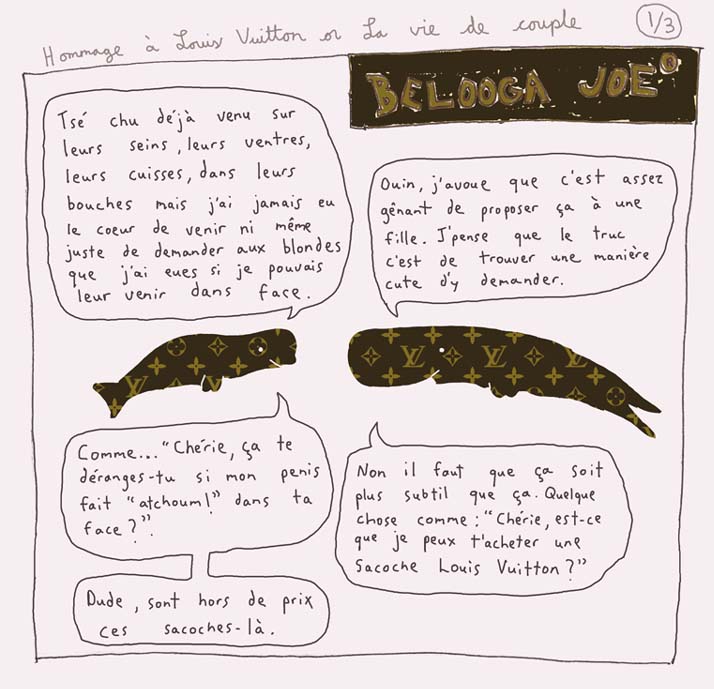 Hommage à Louis Vuitton or La vie de couple
1/3
BELOOGA JOE®
Tsé chu déjà venu sur
leurs seins, leurs ventres,
leurs cuisses, dans leurs
bouches mais j'ai jamais eu
le coeur de venir ni même
juste de demander aux blondes
que j'ai eues si je pouvais
leur venir dans face.
Ouin, j'avoue que c'est assez
gênant de proposer ça à une
fille. J'pense que le truc
c'est de trouver une manière
cute d'y demander.
Comme... "Chérie, ça te
déranges-tu si mon penis
fait "atchoum!" dans ta
face?".
Non il faut que ça soit
plus subtil que ça. Quelque
chose comme: "Chérie, est-ce
que je peux t'acheter une
Sacoche Louis Vuitton?"
Dude, sont hors de prix
ces sacoches-là.